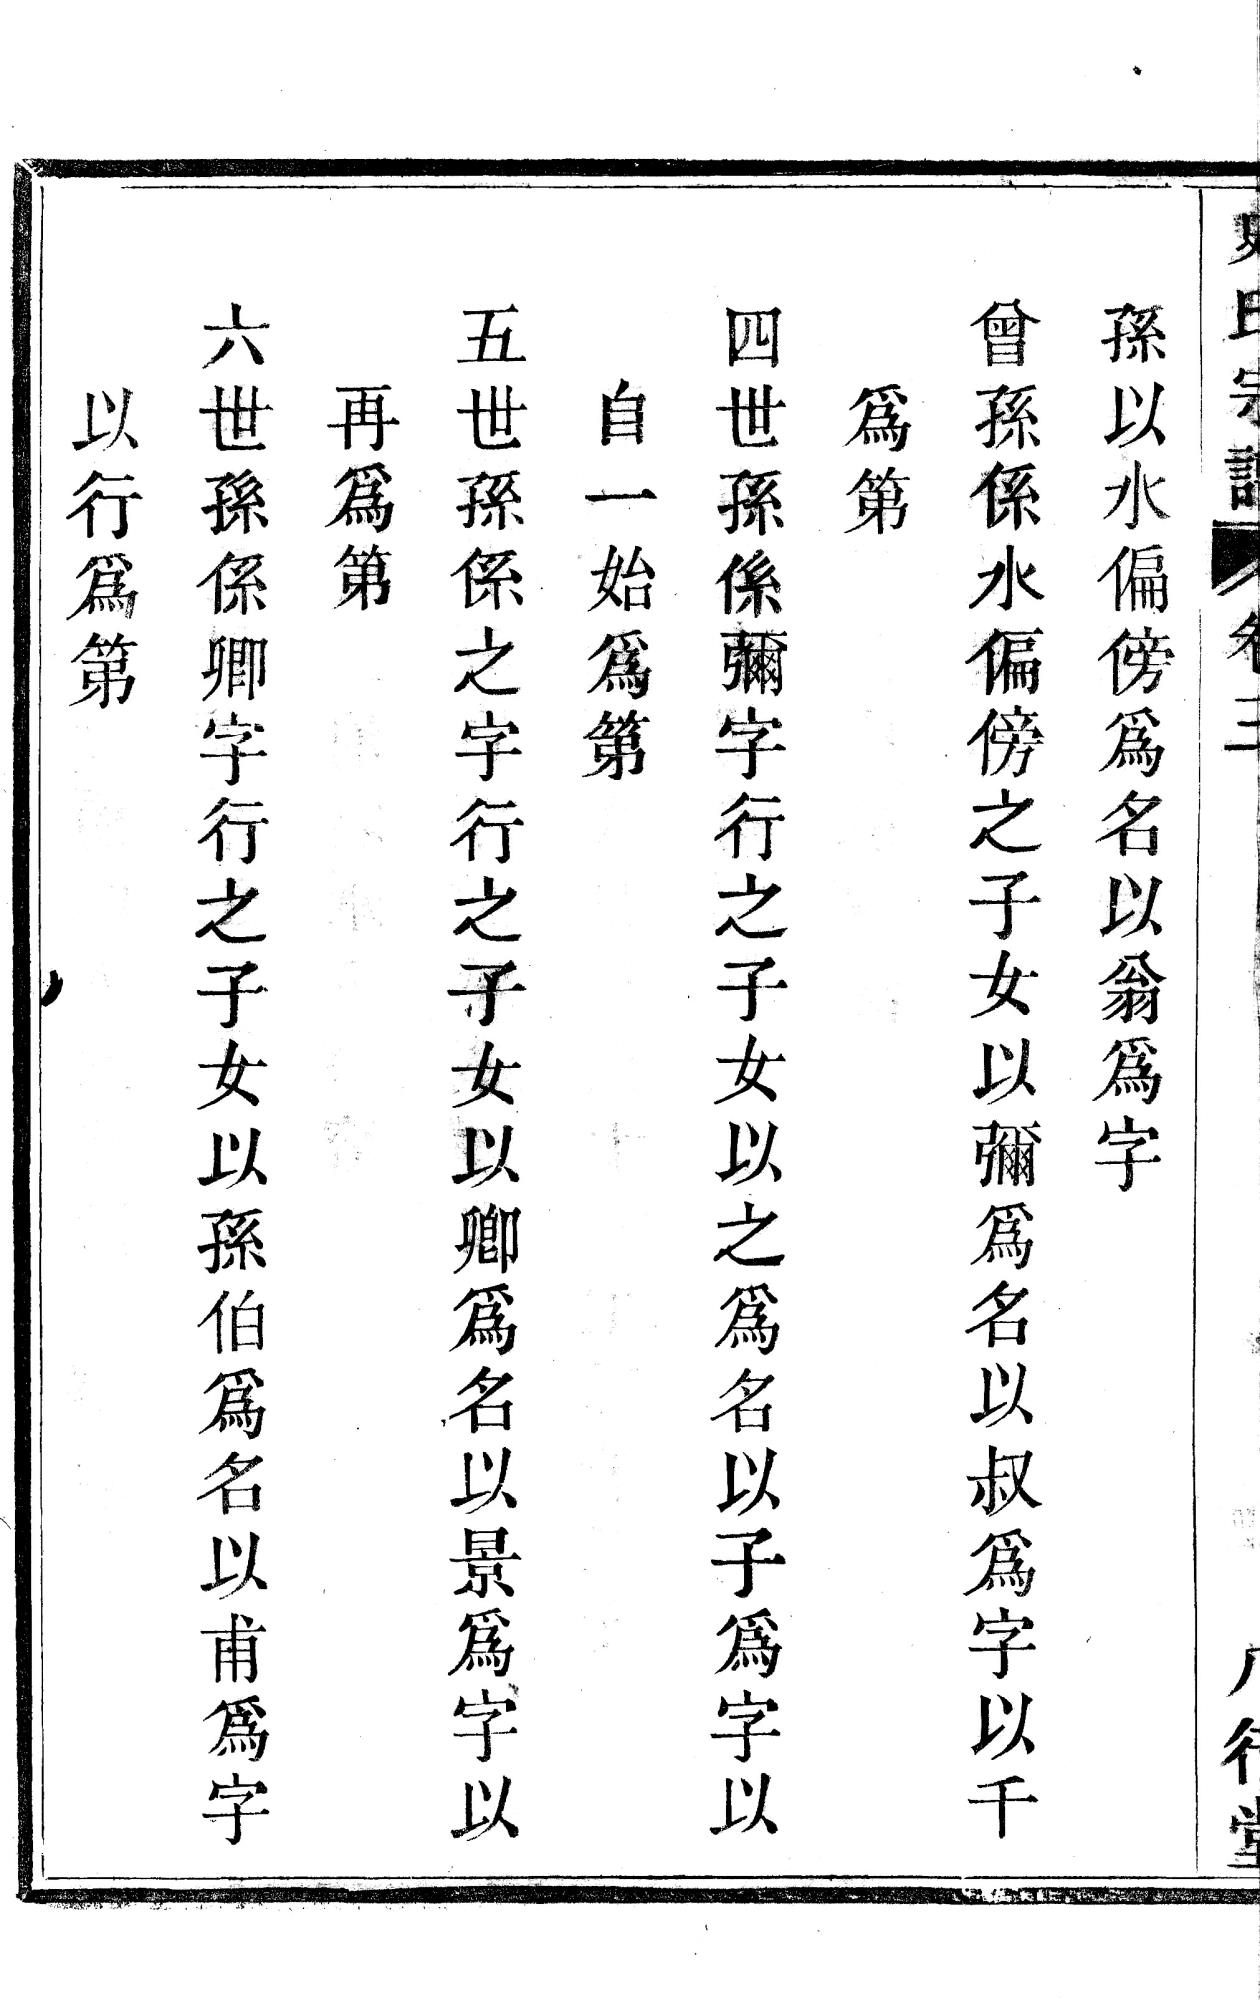 史氏宗譜 卷三 八行堂
孫以水偏傍爲名以翁爲字
曾孫係水偏傍之子女以彌爲名以叔爲字以千
爲第
四世孫係彌字行之子女以之爲名以子爲字以
自一始爲第
五世孫係之字行之子女以卿爲名以景爲字以
再爲第
六世孫係卿字行之子女以孫伯爲名以甫爲字
以行爲第